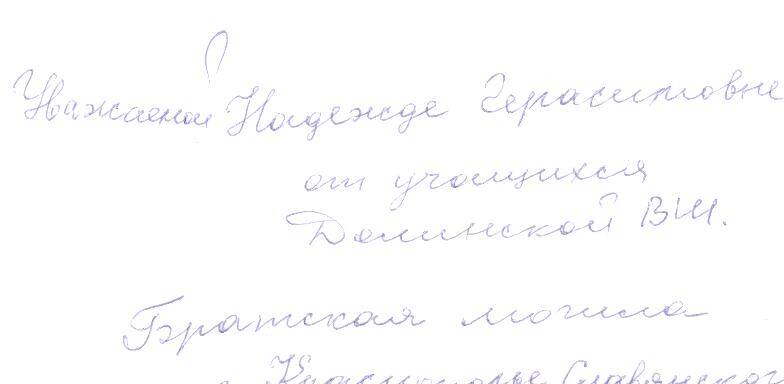 Уважаемой Надежде Герасимовне
от учащихся
Долинской ВШ.
Братская могила
Славянского